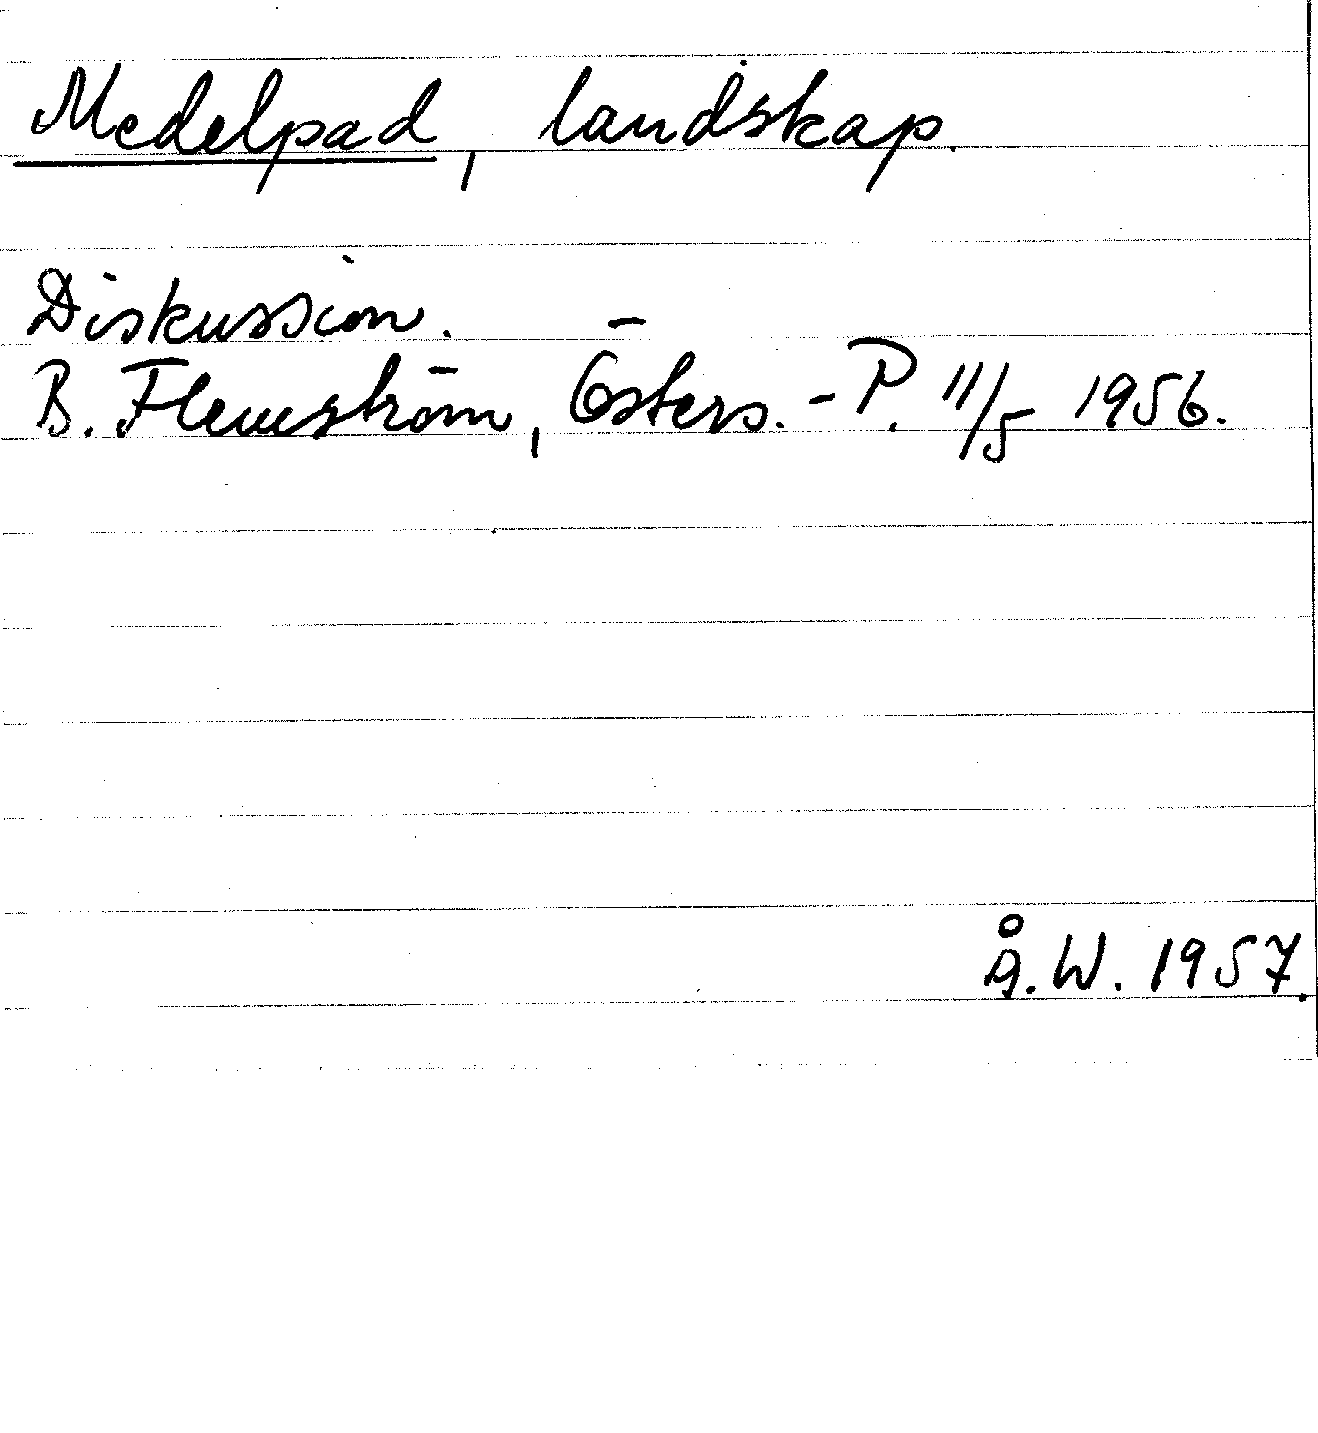 Medelpad, landskap.
Diskussion.
B. Flemström, Östers.-P. 11/5 1956.
Å.W. 1957.